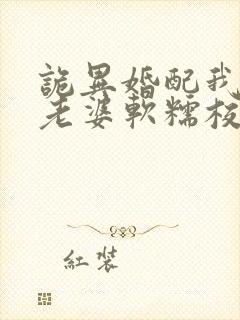 詭異婚配我
老婆軟糯枝
紅裝